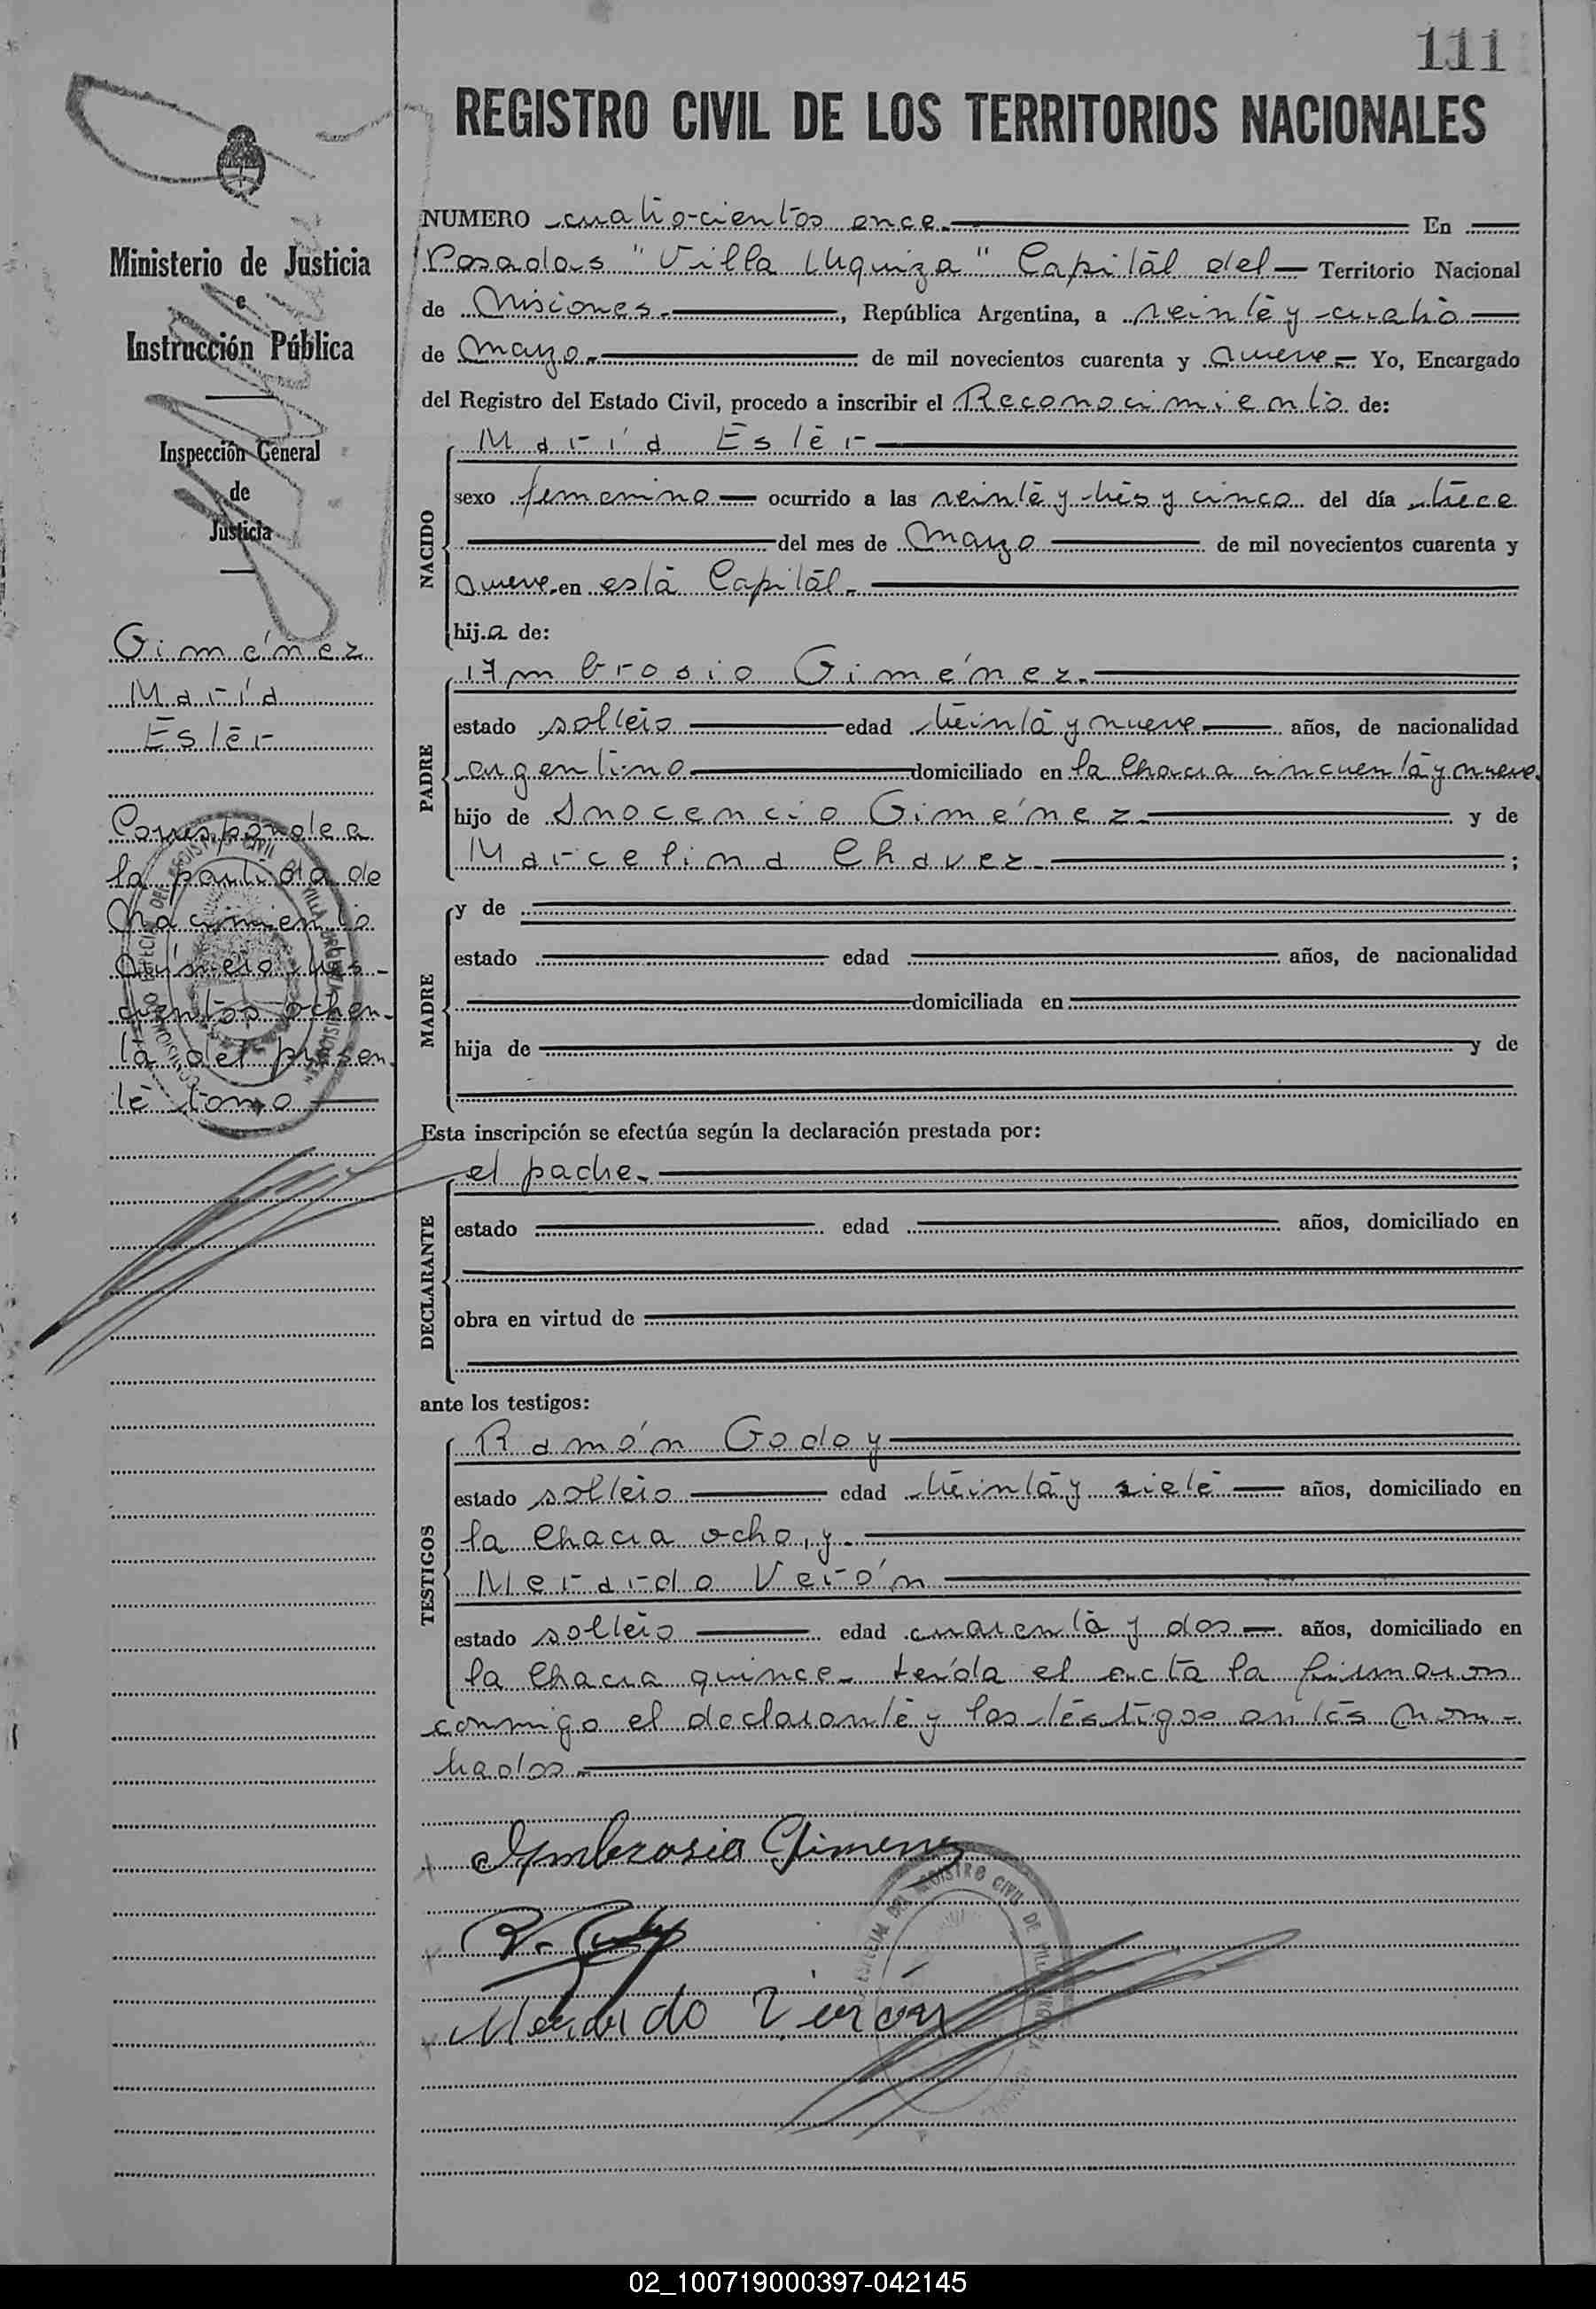 111
REGISTRO CIVIL DE LOS TERRITORIOS NACIONALES
Ministerio de Justicia
e
Instrucción Pública
Inspección General
de
Justicia
Giménez
María
Ester
Corresponde a
la partida de
Nacimiento
número tres-
cientos ochen-
ta del presen-
te tomo
NUMERO cuatrocientos once. En
Posadas "Villa Urquiza" Capital del Territorio Nacional
de Misiones. , República Argentina, a veinte y cuatro
de Marzo. de mil novecientos cuarenta y nueve. Yo, Encargado
del Registro del Estado Civil, procedo a inscribir el Reconocimiento de:
María Ester
NACIDO
sexo femenino ocurrido a las veinte y tres y cinco del día trece
del mes de Marzo de mil novecientos cuarenta y
nueve. en esta Capital.
hija de:
Ambrosio Giménez.
PADRE
estado soltero edad treinta y nueve años, de nacionalidad
argentino domiciliado en la Chacra cincuenta y nueve.
hijo de Inocencio Giménez y de
Marcelina Chavez ;
MADRE
y de
estado edad años, de nacionalidad
domiciliada en
hija de y de
Esta inscripción se efectúa según la declaración prestada por:
el padre.
DECLARANTE
estado edad años, domiciliado en
obra en virtud de
ante los testigos:
Ramón Godoy
TESTIGOS
estado soltero edad treinta y siete años, domiciliado en
la Chacra ocho, y.
Merardo Verón
estado soltero edad cuarenta y dos años, domiciliado en
la Chacra quince. Leída el acta la firmaron
conmigo el declarante y los testigos antes nom-
brados.
Ambrosio Gimenez
Merardo Verón
REGISTRO CIVIL DE VILLA URQUIZA
02_100719000397-042145